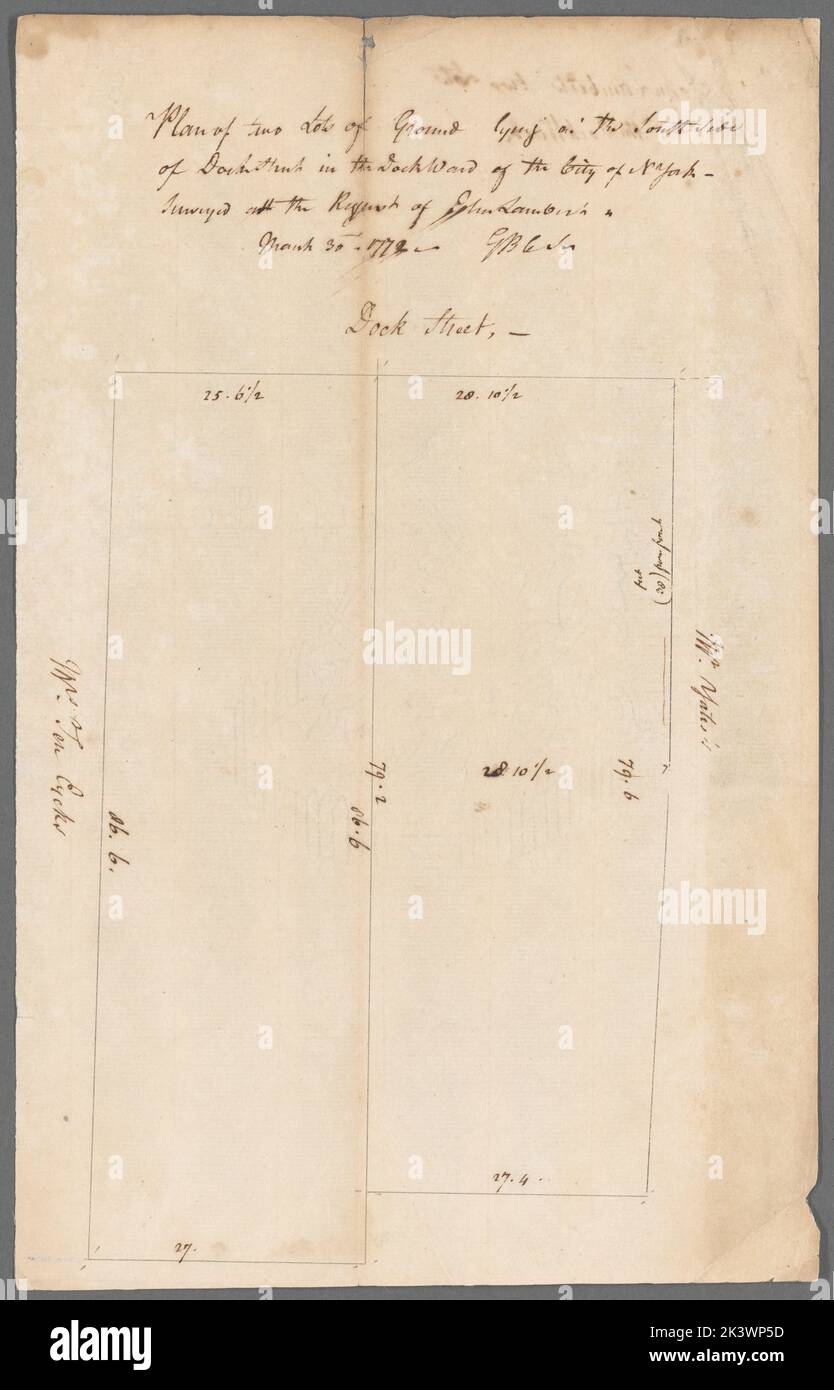 Plan of two Lots of Ground lying on the South side
of Dock Street in the Dock Ward of the City of N York –
Surveyed att the Request of John Lambert
March 30 1772 GB C Sr
Dock Street, –
25. 6 1/2
28. 10 1/2
feet
(38) from front
Mr. Yates's
Mrs. Ten Eycks
79. 2
28 10 1/2
79. 6
86. 6.
86. 6
27. 4.
27.
alamy
Image ID: 2K3WP5D
www.alamy.com